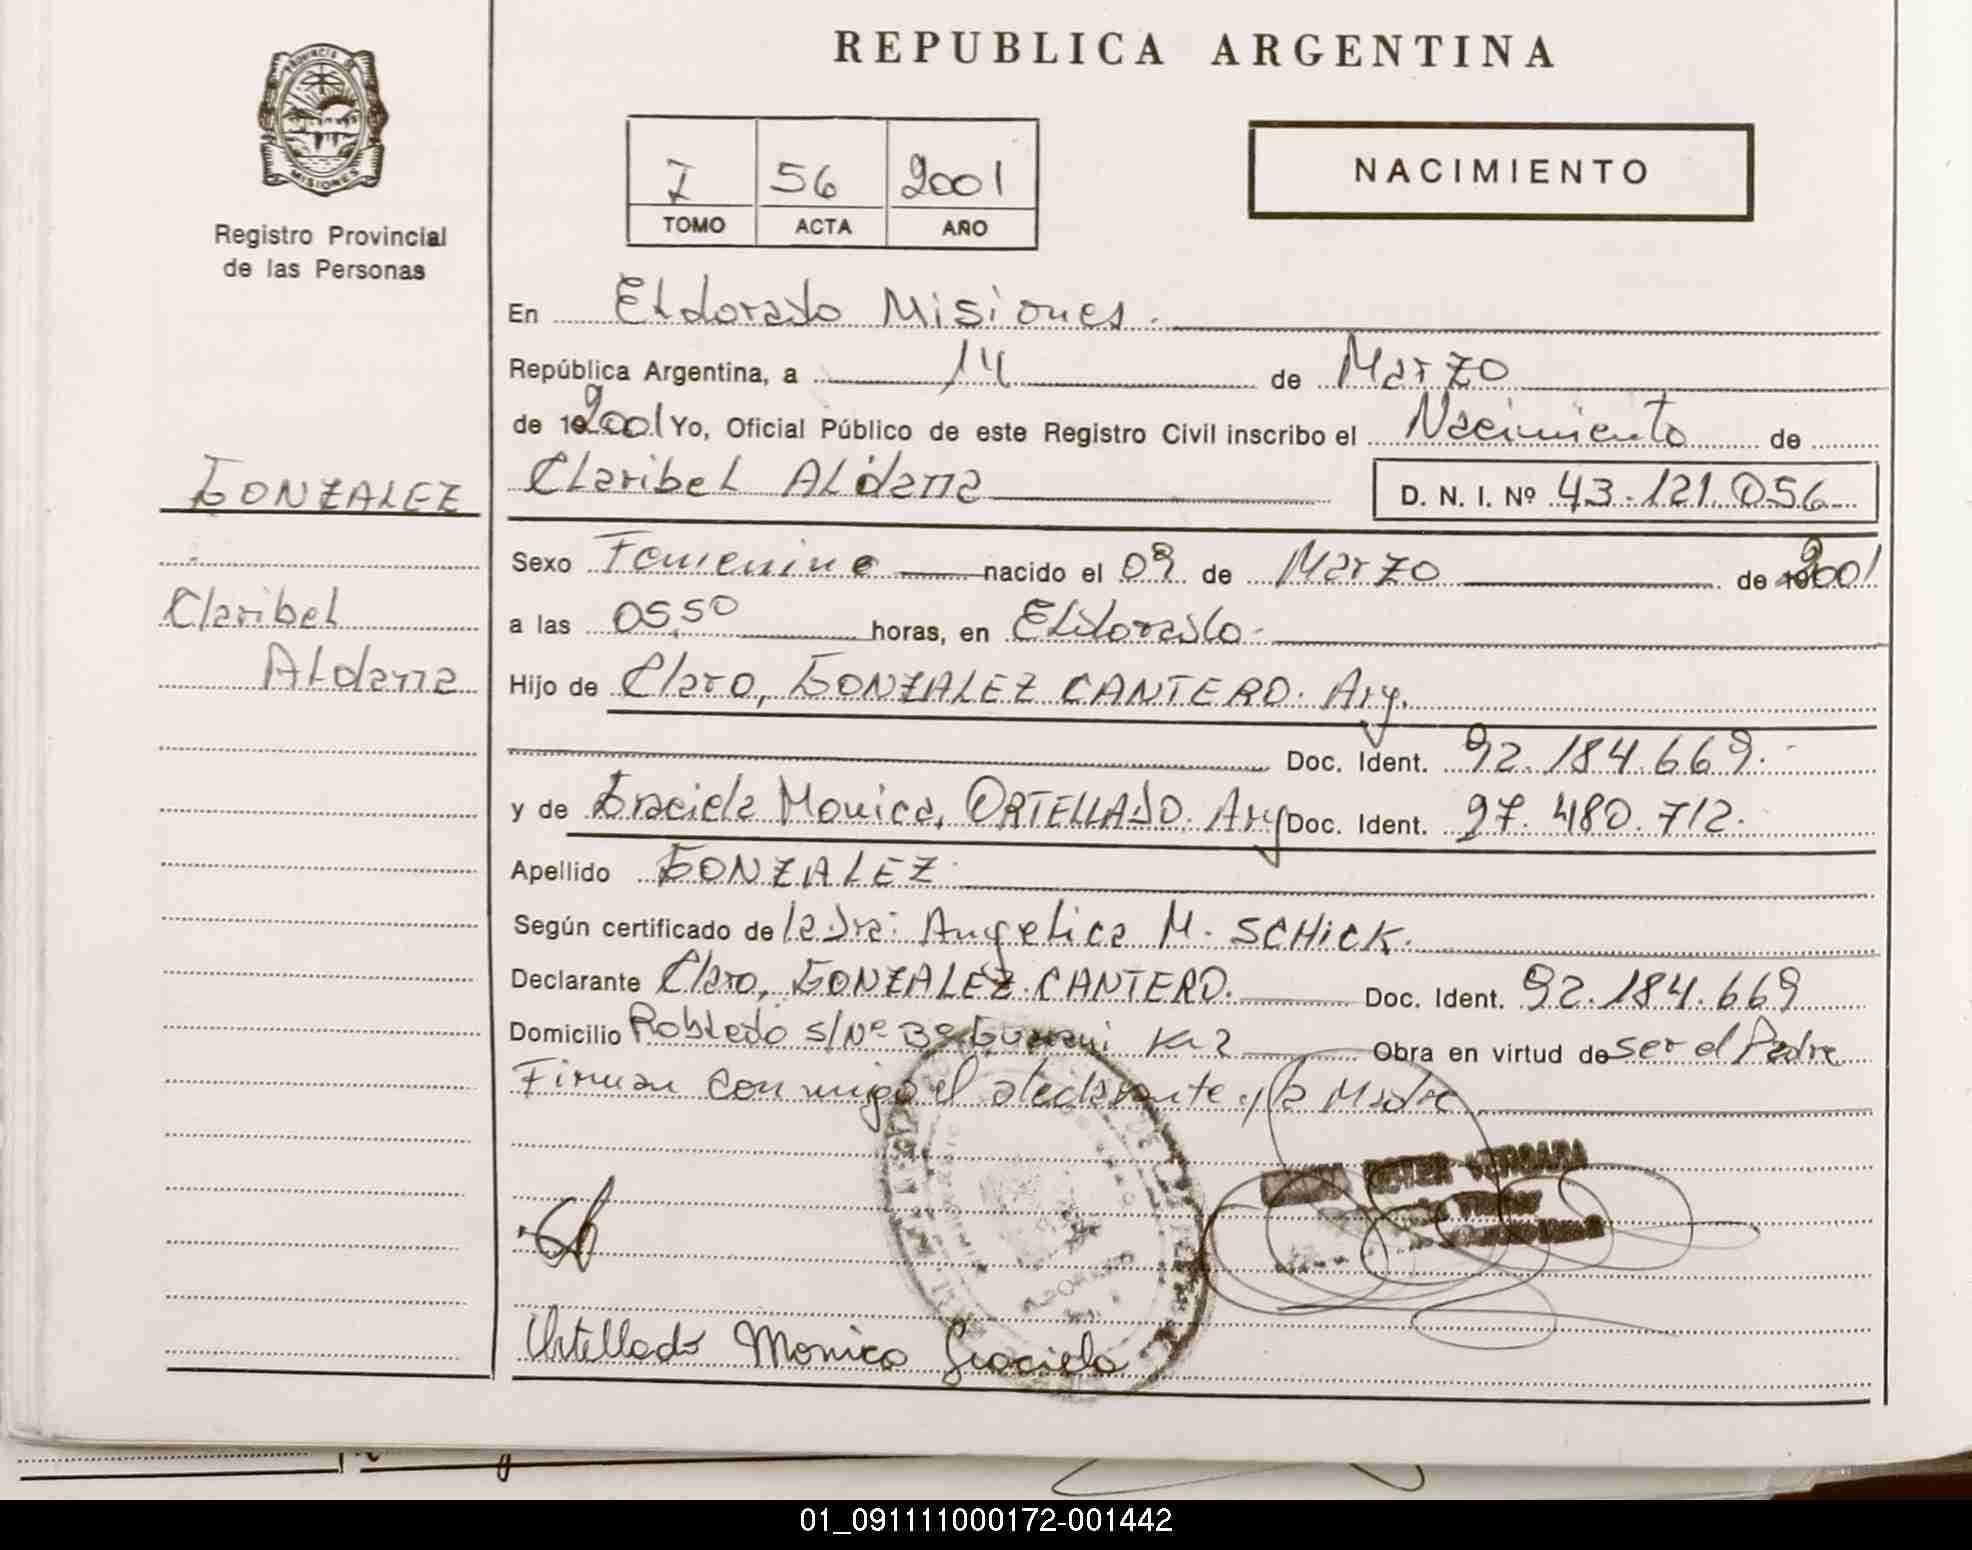 REPUBLICA ARGENTINA
PROVINCIA DE
MISIONES
Registro Provincial
de las Personas
I 56 2001
TOMO ACTA AÑO
NACIMIENTO
En Eldorado Misiones.
República Argentina, a 14 de Marzo
de 2001 Yo, Oficial Público de este Registro Civil inscribo el Nacimiento de
GONZALEZ
Claribel Aldana D. N. I. Nº 43.121.056
Sexo Femenino nacido el 09 de Marzo de 2001
Claribel
a las 05,50 horas, en Eldorado
Aldana
Hijo de Claro, GONZALEZ CANTERO. Arg.
Doc. Ident. 92.184.669.
y de Graciela Monica, ORTELLADO. Arg Doc. Ident. 97.480.712.
Apellido GONZALEZ
Según certificado de la Dra: Angelica M. SCHICK.
Declarante Claro, GONZALEZ CANTERO. Doc. Ident. 92.184.669
Domicilio Robledo s/Nº Bº Guarani Obra en virtud de ser el Padre
Firman conmigo el declarante y la Madre
ESTER VERGARA
Titular
Ortellado Monica Graciela
01_091111000172-001442